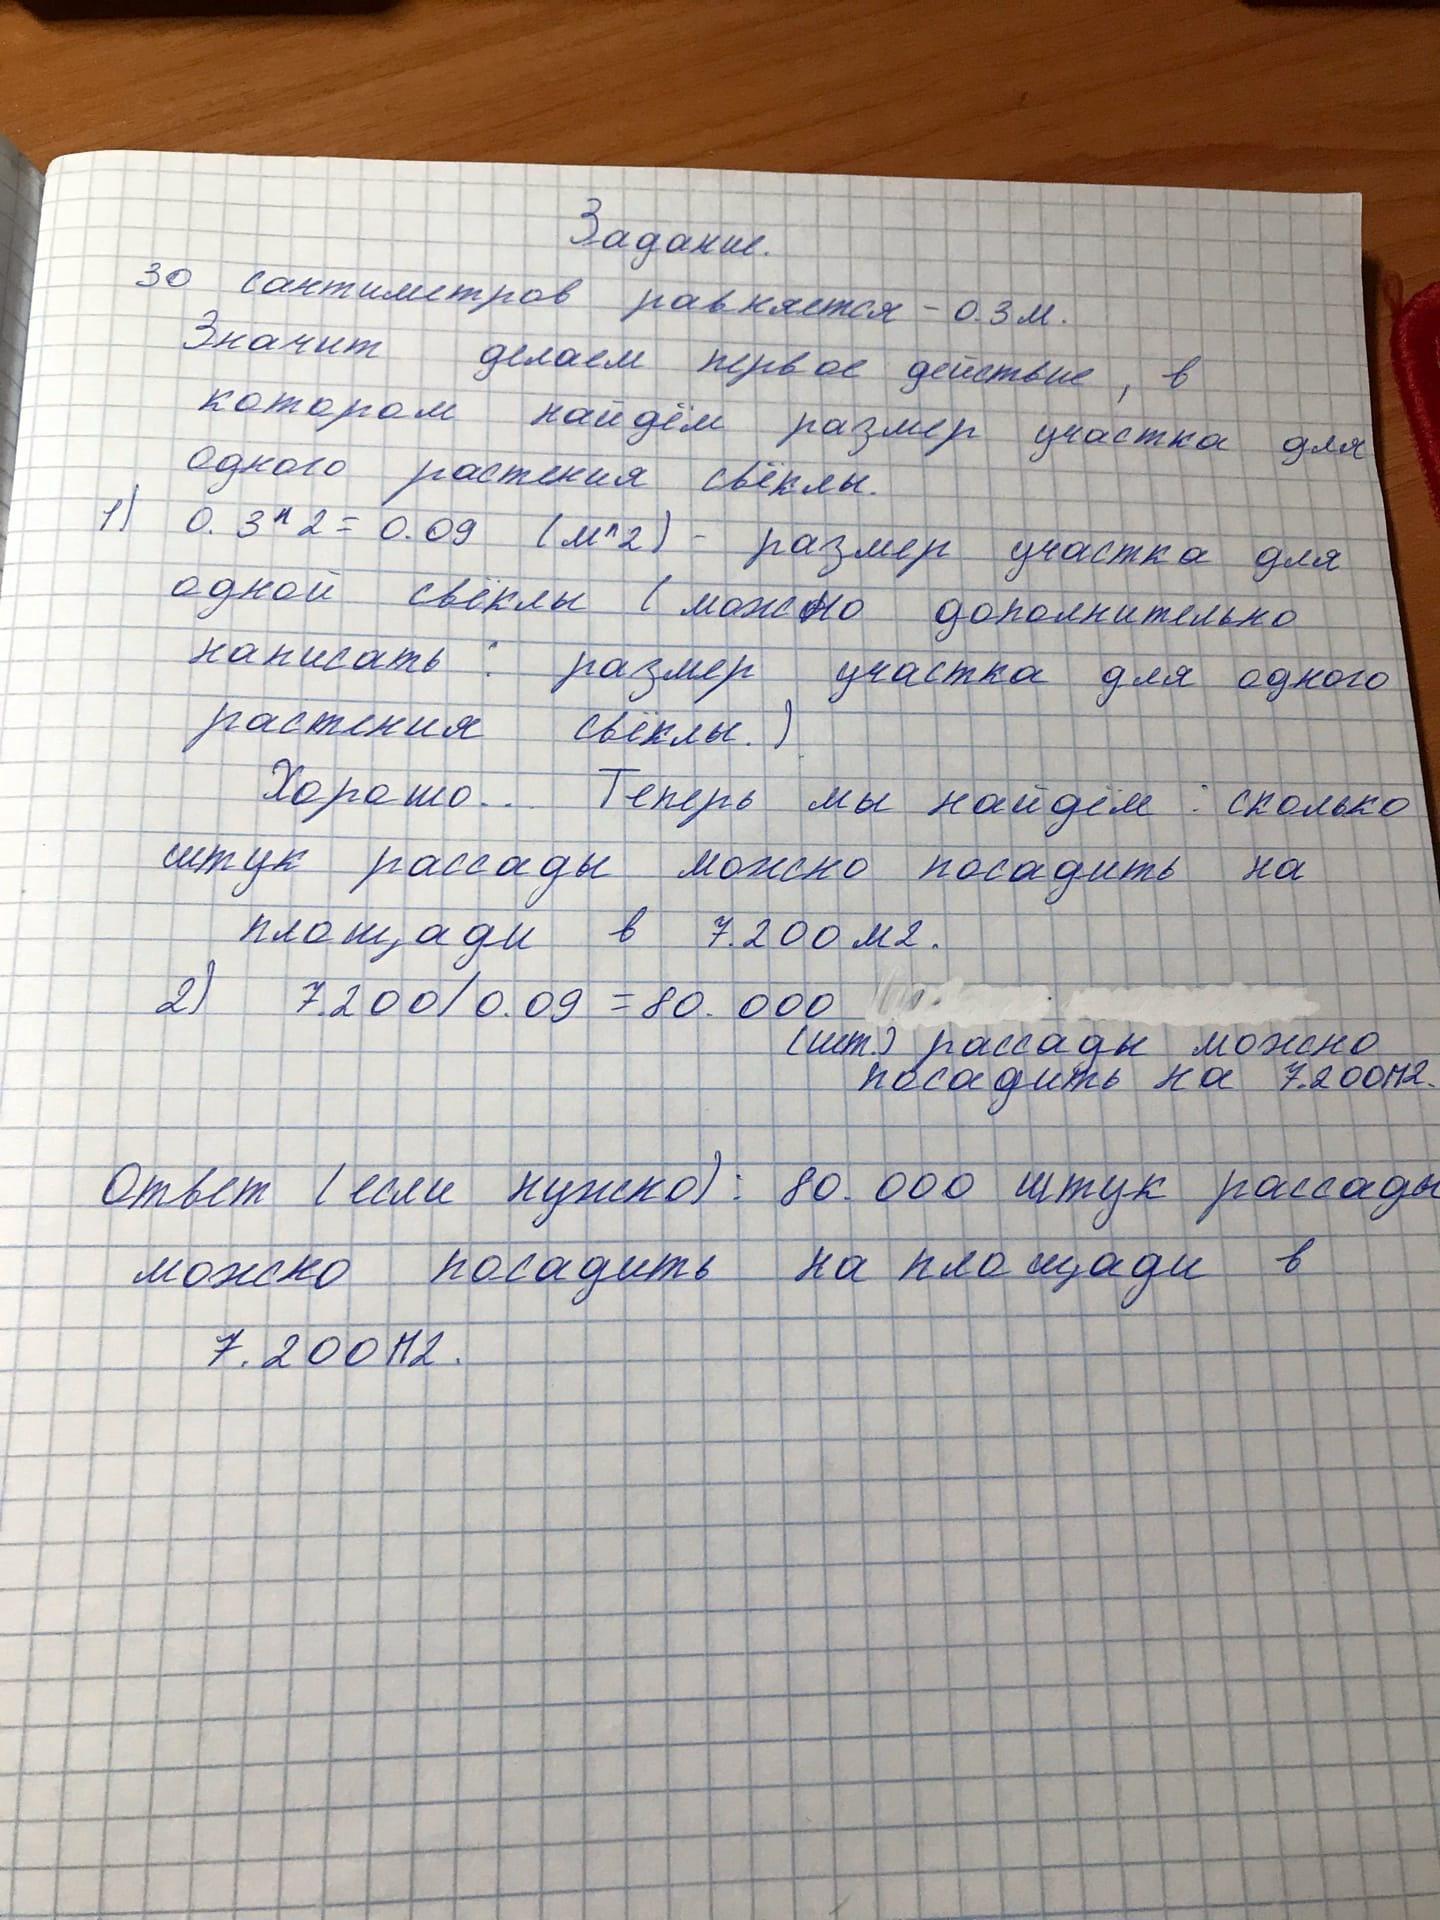 Задание.
30 сантиметров равняется - 0.3 м.
Значит делаем первое действие, в
котором найдём размер участка для
одного растения свёклы.
1) 0.3^2 = 0.09 (м^2) - размер участка для
одной свёклы (можно дополнительно
написать: размер участка для одного
растения свёклы.)
Хорошо... Теперь мы найдём: сколько
штук рассады можно посадить на
площади в 7.200 м2.
2) 7.200/0.09 = 80.000
(шт.) рассады можно
посадить на 7.200М2.
Ответ (если нужно): 80.000 штук рассады
можно посадить на площади в
7.200М2.